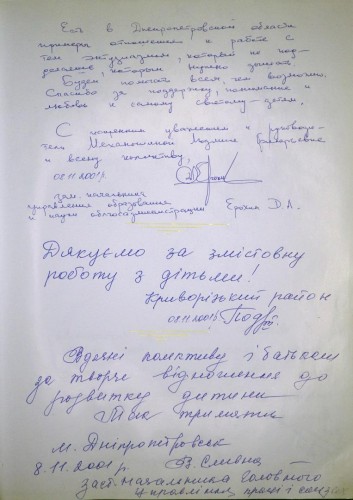 Есть в Днепропетровской области
примеры отношения к работе с
тем энтузиазмом, который не над-
которым нужно
Будем помогать всем, чем возможно.
Спасибо за поддержку, понимание и
любовь к самому светлому – детям.
С искренним уважением к руководи-
телю Людмиле Григорьевне
и всему коллективу,
02.11.2001
зам. начальника
управления образования
и науки облгосадминистрации Ерохин Д.А.
Дякуємо за змістовну
роботу з дітьми!
Криворізький район
02.11.2001
Вдячні колективу і батькам
за творче відношення до
розвитку дитини
Так тримати
м. Дніпропетровськ
8.11.2001 р.
Заст. начальника Головного
управління праці і